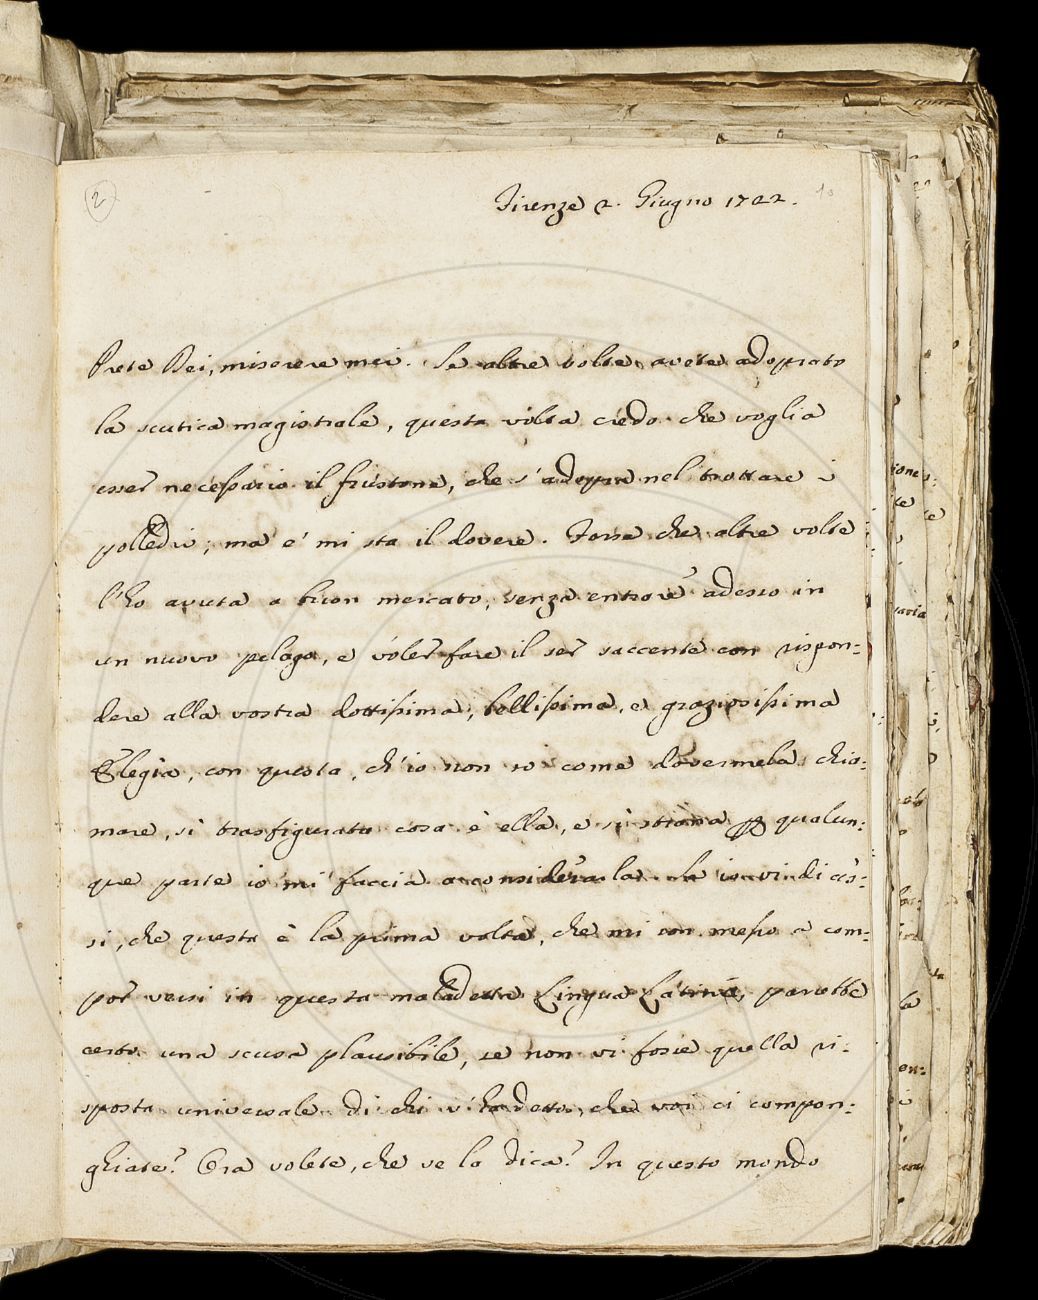 2
Firenze 2. Giugno 1722.
Prete Dei, miserere mei. Se altre volte avete adoprato
la scutica magistrale, questa volta credo che voglia
esser necessario il frustone, che s'adopra nel trottare i
polledri; ma e' mi sta il dovere. Forse che altre volte
l'ho avuta a buon mercato, senza entrare adesso in
un nuovo pelago, e voler fare il ser saccente con rispon=
dere alla vostra dottissima, bellissima, e graziosissima
Elegia, con questa, ch'io non so come dovermela chia=
mare, sì trasfigurata cosa è ella, e sì strana p qualun=
que parte io mi faccia a considerarla. La
si, che questa è la prima volta, che mi son messo a com=
por versi in questa maladetta Lingua Latina, parrebbe
certo una scusa plausibile, se non vi fosse quella ri=
sposta universale di chi v'ha detto, che voi ci compon=
ghiate? Ora volete, che ve lo dica? In questo mondo